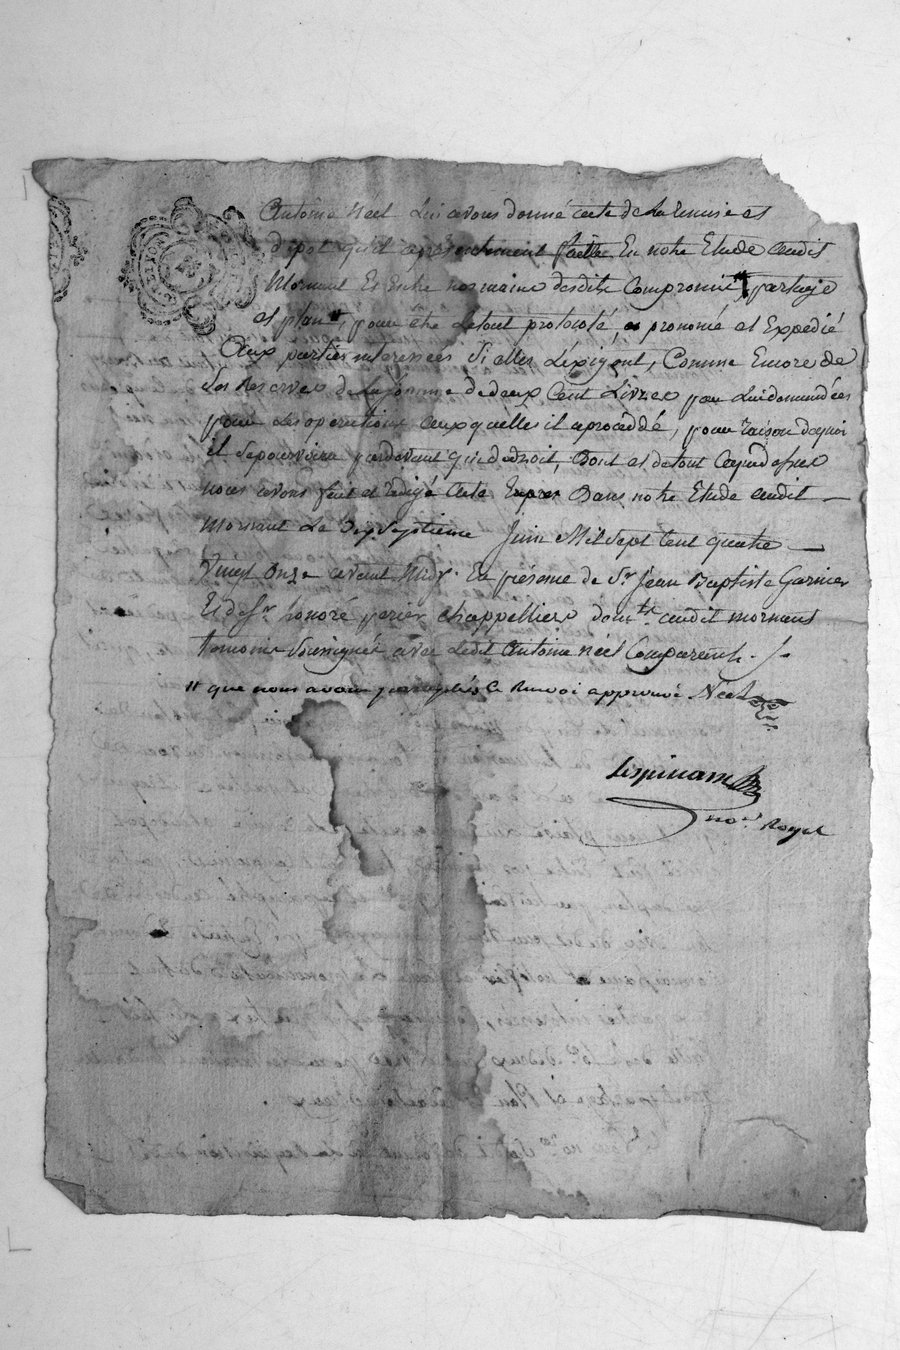 Antoine Néel Lui avons donné acte de la Remise et
dépôt qu'il a présentement faitte En notre Etude audit
Mornant Et Entre nos mains desdits Compromis " partage
et plan ", pour être Letout protocolé, prononcé et Expedié
Aux parties interessées Si elles L'exigent, Comme Encore de
Ses Reserves de La Somme de deux Cent Livres par Lui demandées
pour Les operations auxquelles il a procédé, pour raison de quoi
il Se pourvoira pardevant qui de droit, Dont et de tout Ce que dessus
nous avons fait et rédigé acte Dans notre Etude audit
Mornant Le Dix Septieme Juin Mil Sept Cent quatre
Vingt Onze avant Midy. En présence de Sr. Jean Baptiste Garnier
Et de Sr. honoré perier chappelliers dem.ts audit mornant
temoins Soussignés avec Ledit Antoine Néel Comparent. /.
" que nous avons paraphés Le Renvoi approuvé Néel
Lespinasse
no.re Royal